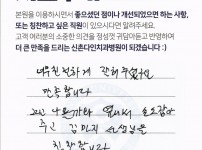 본원을 이용하시면서 좋으셨던 점이나 개선되었으면 하는 사항,
또는 칭찬하고 싶은 직원이 있으시다면 알려주세요.
고객 여러분의 소중한 의견을 정성껏 귀담아듣고 반영하여
더 큰 만족을 드리는 신촌다인치과병원이 되겠습니다 :)
너무 친절하게 잘 해주셔서
만족합니다
주고 김민지 선생님을
칭찬합니다